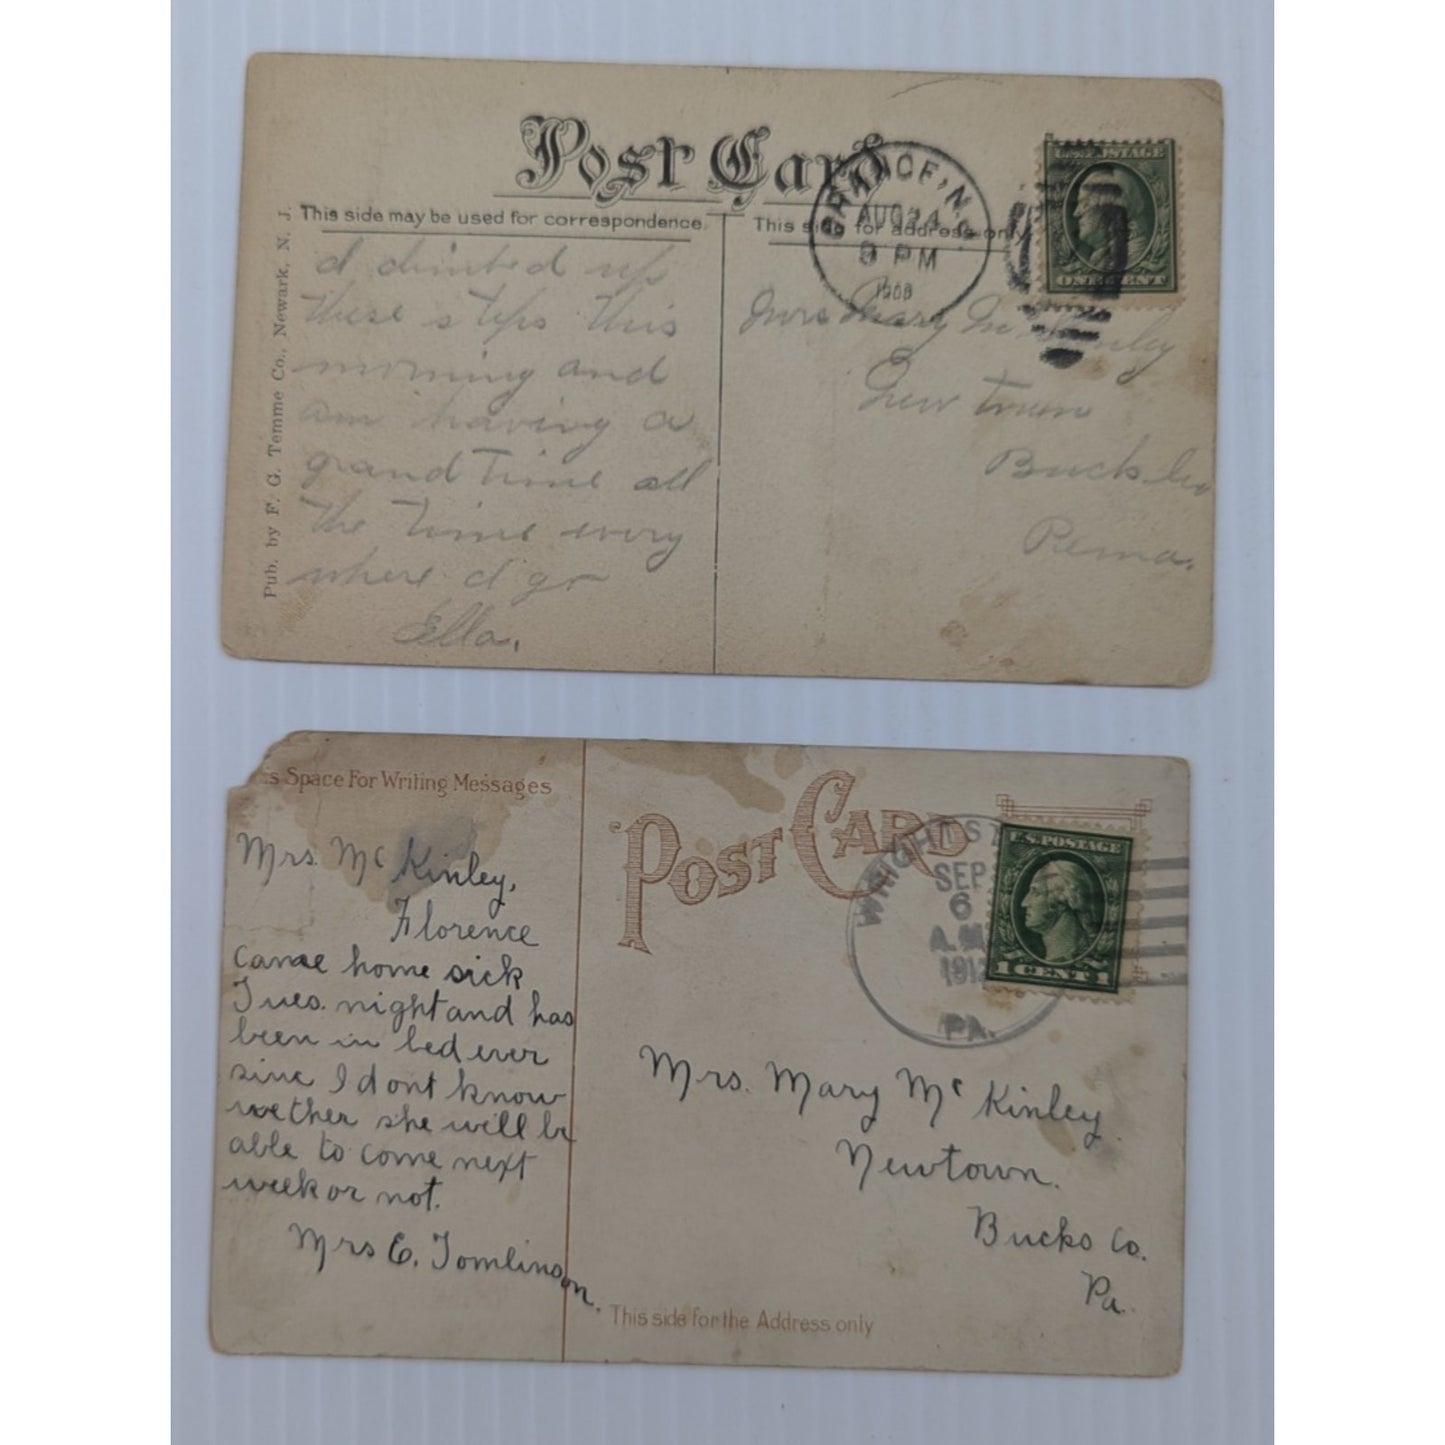 Post Card
This side may be used for correspondence.
This side for address only
ORANGE, N.J.
AUG 24
9 PM
1908
U.S. POSTAGE
ONE CENT
Pub. by F. G. Temme Co., Newark, N. J.
I climbed up
these steps this
morning and
am having a
grand time all
the time every
where I go
Ella.
Mrs Mary McKinley
New town
Bucks Co
Penna.
s Space For Writing Messages
POST CARD
WRIGHTST
SEP
6
A.M.
191
PA.
U.S. POSTAGE
1 CENT 1
Mrs. Mc Kinley,
Florence
came home sick
Tues. night and has
been in bed ever
sinc I dont know
wether she will be
able to come next
week or not.
Mrs E. Tomlinson.
Mrs. Mary Mc Kinley.
Newtown.
Bucks Co.
Pa.
This side for the Address only